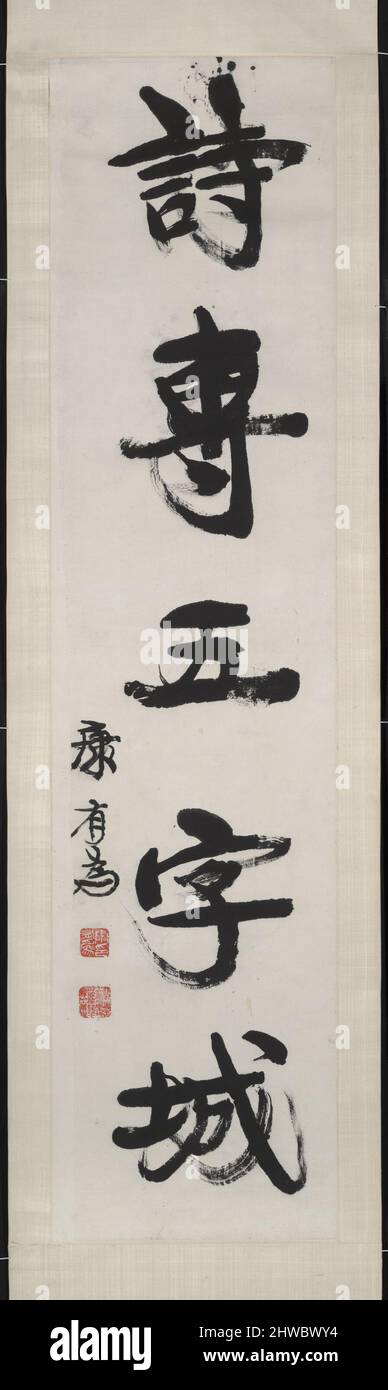 詩專五字城
康有為
alamy
Image ID: 2HWBVY4
www.alamy.com